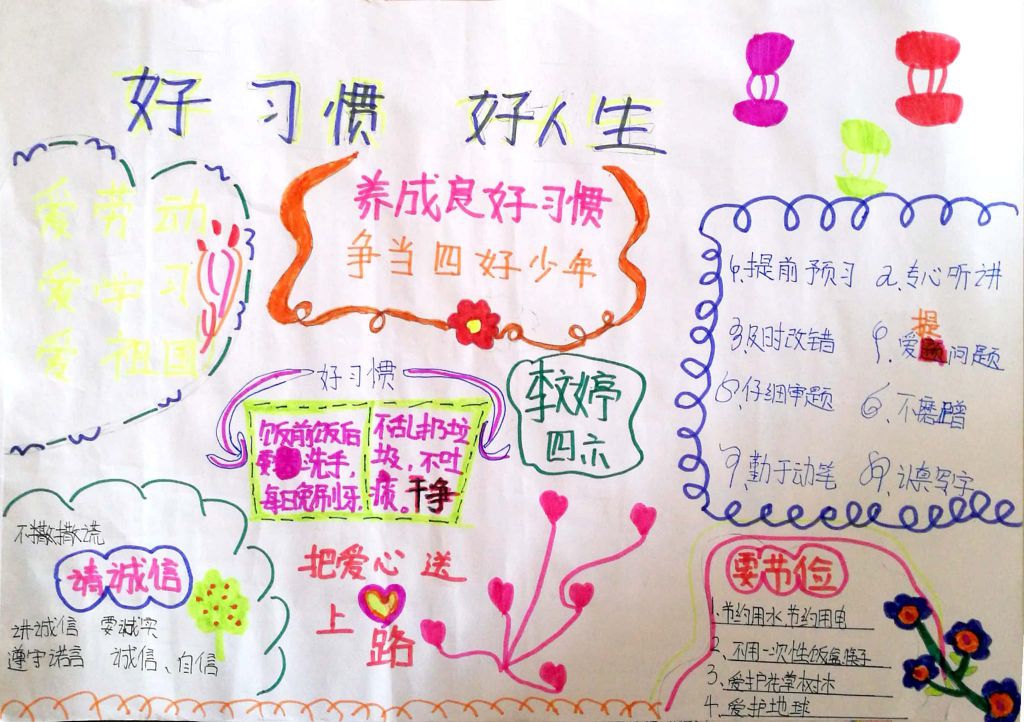 好习惯 好人生
爱劳动
爱学习
爱祖国
养成良好习惯
争当四好少年
1、提前预习 2、专心听讲
3、及时改错 4、爱提问题
5、仔细审题 6、不磨蹭
7、勤于动笔 8、认真写字
好习惯
饭前饭后
要洗手，
每日晚刷牙，
不乱扔垃
圾，不吐
痰。干净
李文婷
四六
不撒谎
请诚信
讲诚信 要诚实
遵守诺言 诚信、自信
把爱心送
上路
要节俭
1、节约用水节约用电
2、不用一次性饭盒筷子
3、爱护花草树木
4、爱护地球